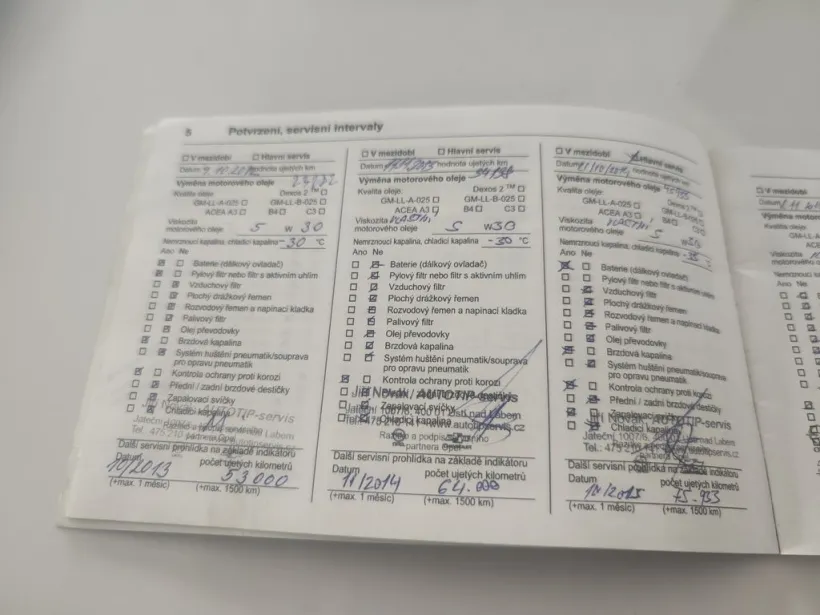 8 Potvrzení, servisní intervaly
V mezidobí Hlavní servis
Datum hodnota ujetých km
Výměna motorového oleje
Kvalita oleje: Dexos 2 TM
GM-LL-A-025 GM-LL-B-025
ACEA A3 B4 C3
Viskozita
motorového oleje 5 W 30
Nemrznoucí kapalina, chladicí kapalina -30 °C
Ano Ne
Baterie (dálkový ovladač)
Pylový filtr nebo filtr s aktivním uhlím
Vzduchový filtr
Plochý drážkový řemen
Rozvodový řemen a napínací kladka
Palivový filtr
Olej převodovky
Brzdová kapalina
Systém huštění pneumatik/souprava
pro opravu pneumatik
Kontrola ochrany proti korozi
Přední / zadní brzdové destičky
Zapalovací svíčky
Chladicí kapalina
AUTOTIP-servis
partnera Opel
Další servisní prohlídka na základě indikátoru
Datum počet ujetých kilometrů
10/2013 53000
(+max. 1 měsíc) (+max. 1500 km)
V mezidobí Hlavní servis
Datum hodnota ujetých km
Výměna motorového oleje
Kvalita oleje: Dexos 2 TM
GM-LL-A-025 GM-LL-B-025
ACEA A3 B4 C3
Viskozita
motorového oleje 5 W30
Nemrznoucí kapalina, chladicí kapalina -30 °C
Ano Ne
Baterie (dálkový ovladač)
Pylový filtr nebo filtr s aktivním uhlím
Vzduchový filtr
Plochý drážkový řemen
Rozvodový řemen a napínací kladka
Palivový filtr
Olej převodovky
Brzdová kapalina
Systém huštění pneumatik/souprava
pro opravu pneumatik
Kontrola ochrany proti korozi
Jiří Novák, AUTOTIP-servis
Zapalovací svíčky
Jateční 1007/8, 400 01 Ústí nad Labem
Chladicí kapalina
partnera Opel
Další servisní prohlídka na základě indikátoru
Datum počet ujetých kilometrů
11/2014 64.000
(+max. 1 měsíc) (+max. 1500 km)
V mezidobí Hlavní servis
Datum hodnota ujetých km
Výměna motorového oleje
Kvalita oleje: Dexos 2 TM
GM-LL-A-025 GM-LL-B-025
ACEA A3 B4 C3
Viskozita
motorového oleje 5 W30
Nemrznoucí kapalina, chladicí kapalina °C
Ano Ne
Baterie (dálkový ovladač)
Pylový filtr nebo filtr s aktivním uhlím
Vzduchový filtr
Plochý drážkový řemen
Rozvodový řemen a napínací kladka
Palivový filtr
Olej převodovky
Brzdová kapalina
Systém huštění pneumatik/souprava
pro opravu pneumatik
Kontrola ochrany proti korozi
Přední / zadní brzdové destičky
Zapalovací svíčky
Chladicí kapalina
Jiří Novák, AUTOTIP-servis
Jateční 1007/8,
partnera
Další servisní prohlídka na základě indikátoru
Datum počet ujetých kilometrů
10/2015 75.933
(+max. 1 měsíc) (+max. 1500 km)
Datum
Kvalita oleje:
Viskozita
motorového
Ano Ne